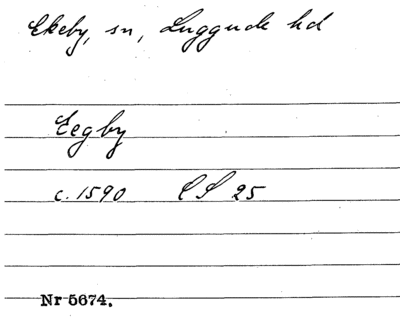 Ekeby, sn, Luggude hd
Eegby
c. 1590 LS 25
Nr 5674.